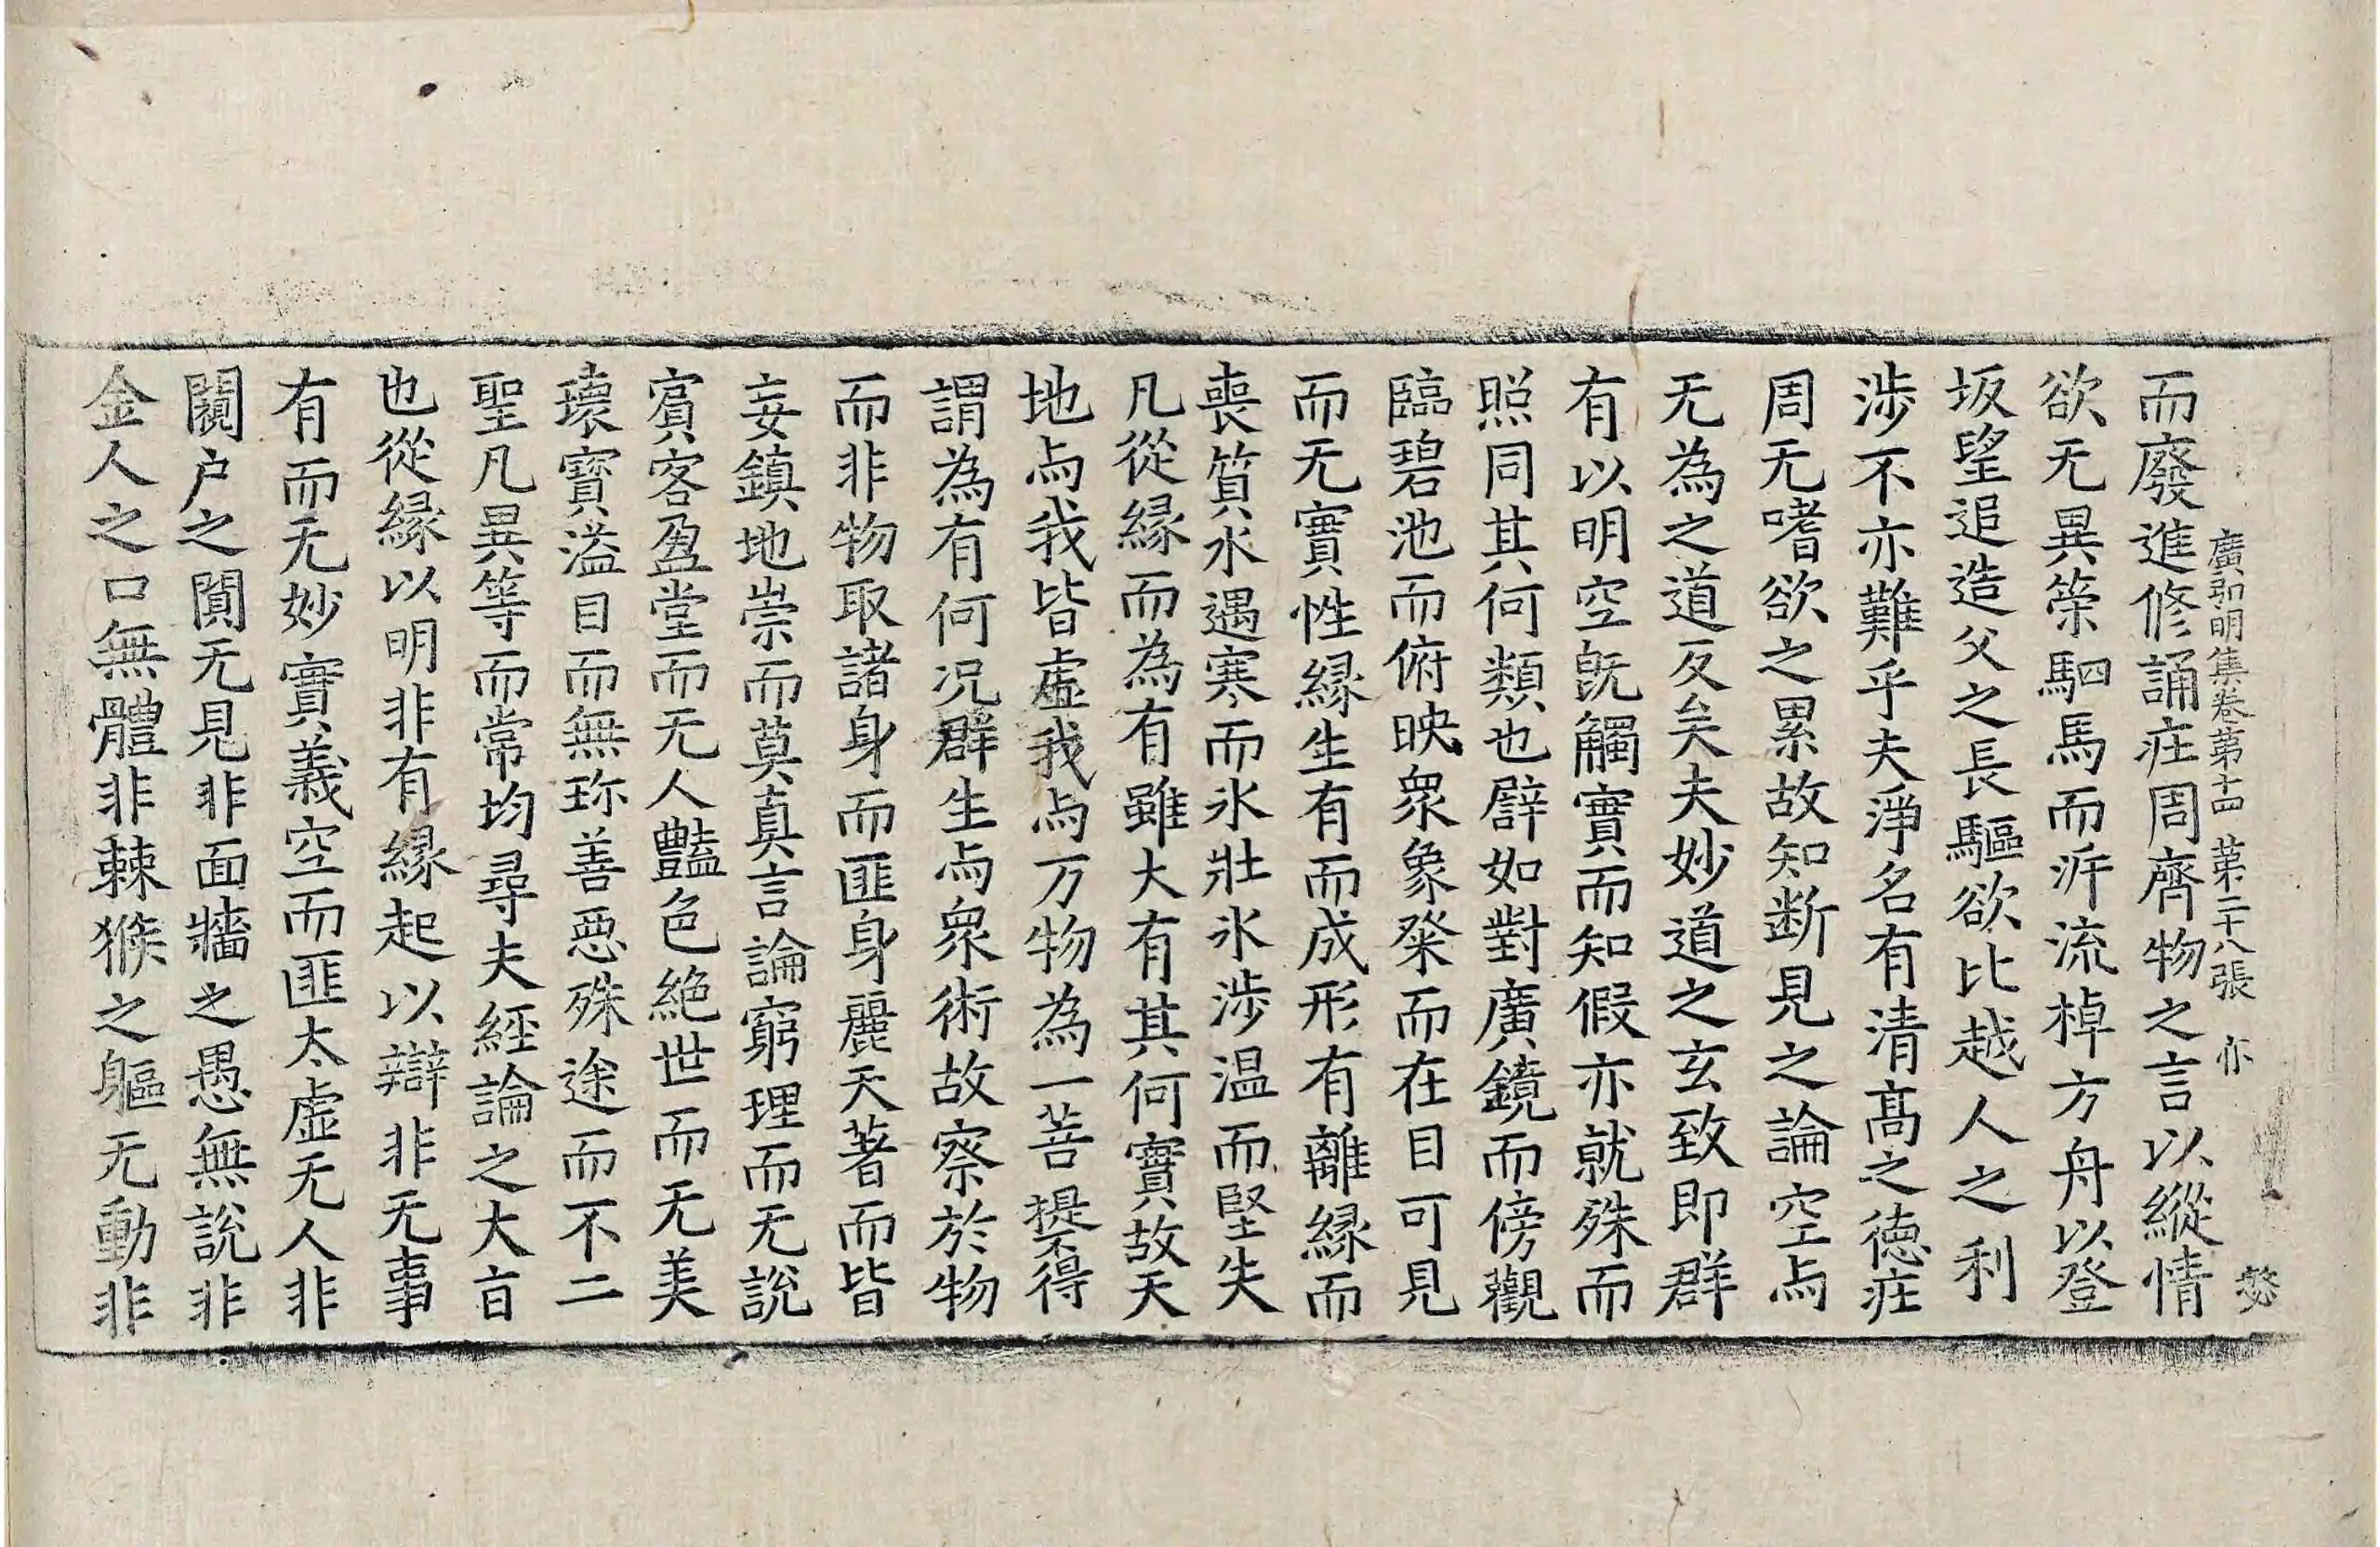 廣弘明集卷第十四 第二十八張 亦
而廢進修誦疰周齊物之言以縱情
欲无異策駟馬而泝流棹方舟以登
坂望追造父之長驅欲比越人之利
涉不亦難乎夫淨名有清髙之德疰
周无嗜欲之累故知断見之論空与
无為之道反矣夫妙道之玄致即群
有以明空既觸實而知假亦就殊而
照同其何類也譬如對廣鏡而傍觀
臨碧池而俯映衆象粲而在目可見
而无實性縁生有而成形有離縁而
喪質水遇寒而氷壯氷涉温而堅失
凡從縁而為有雖大有其何實故天
地与我皆虛我与万物為一菩提不得
謂為有何况群生与衆術故察於物
而非物取諸身而匪身麗天著而皆
妄鎮地崇而莫真言論窮理而无說
賔客盈堂而无人豔色絶世而无美
瓌寳溢目而無珎善惡殊途而不二
聖凡異等而常均尋夫經論之大旨
也從縁以明非有縁起以辯非无事
有而无妙實義空而匪太虛无人非
闃户之闃无見非面牆之愚無說非
金人之口無體非棘猴之軀无動非